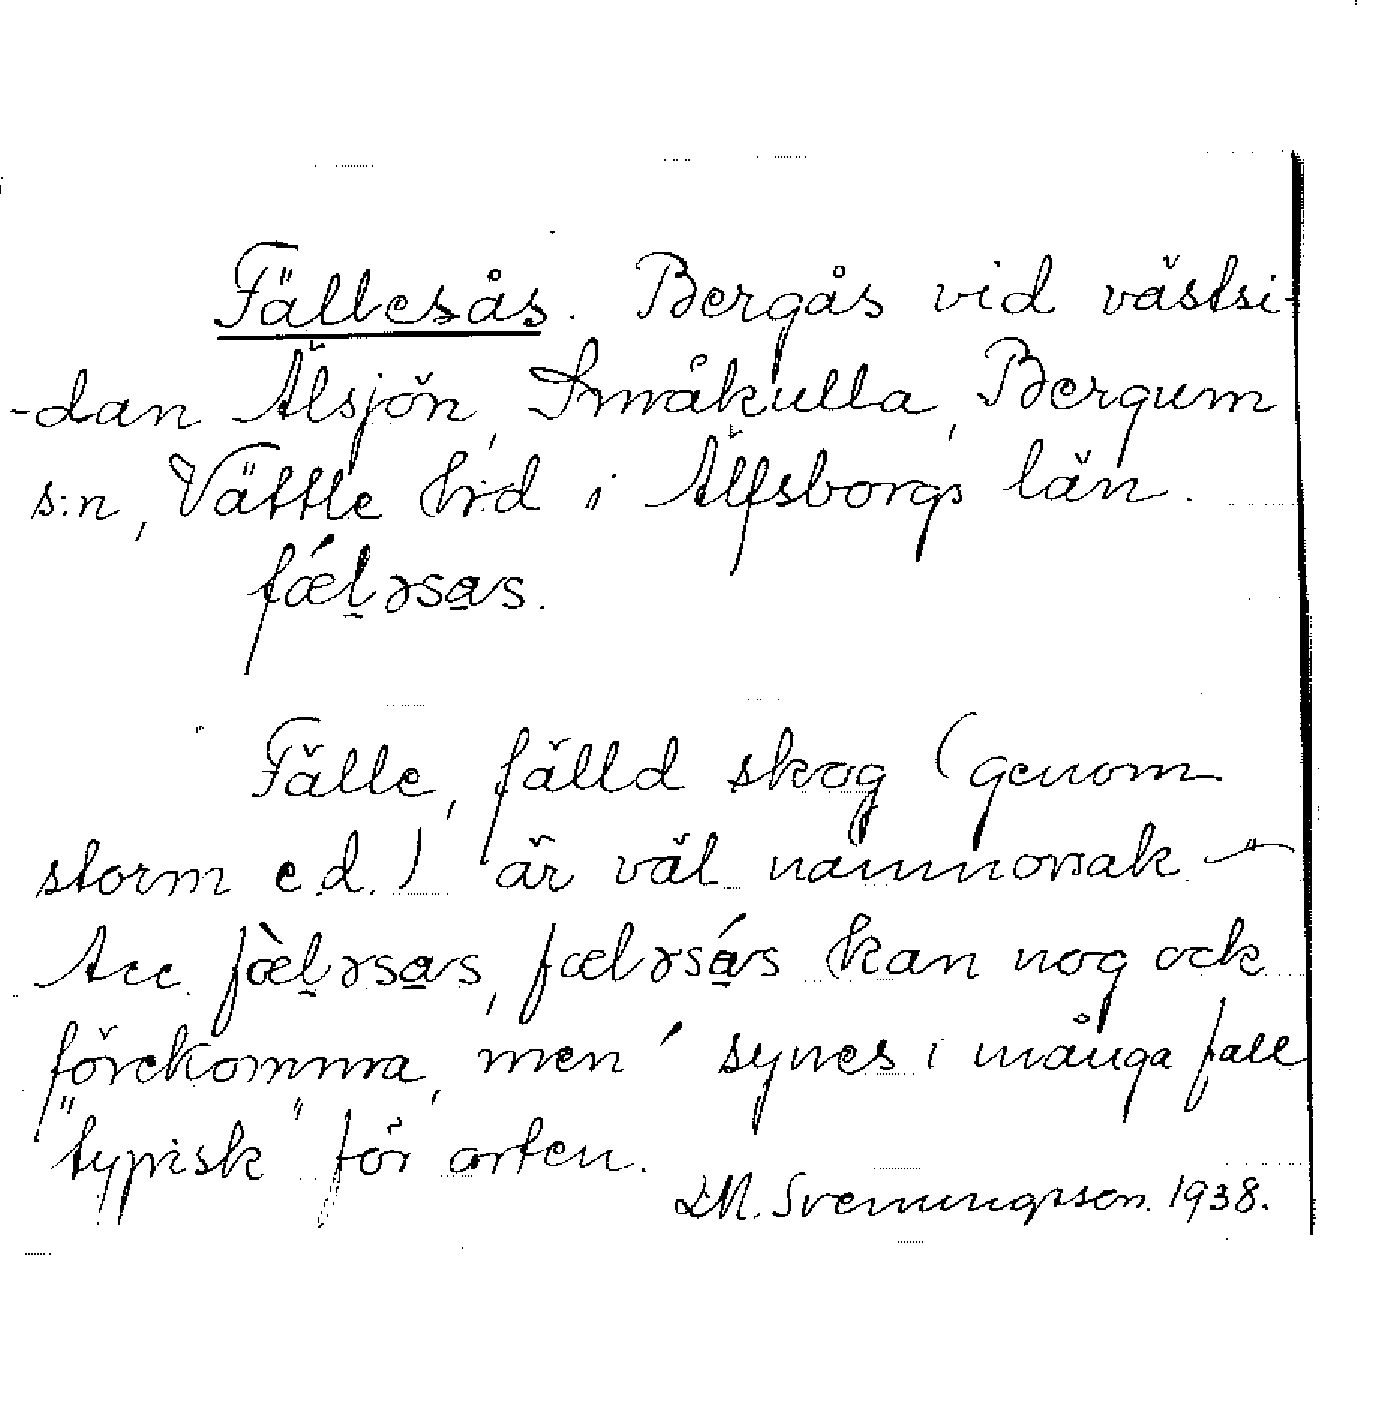 Fällesås. Bergås vid västsi-
-dan Älsjön, Småkulla, Bergum
s:n, Vättle hd i Älfsborgs län.
fǽl̠əsa̠s.
Fälle, fälld skog (genom
storm e.d.) är väl namnorsak —"—
Acc. fæ̀l̠əsa̠s, fæləsá̠s kan nog ock
förekomma, men ´ synes i många fall
"typisk" för orten.
D.M. Svenningsson. 1938.